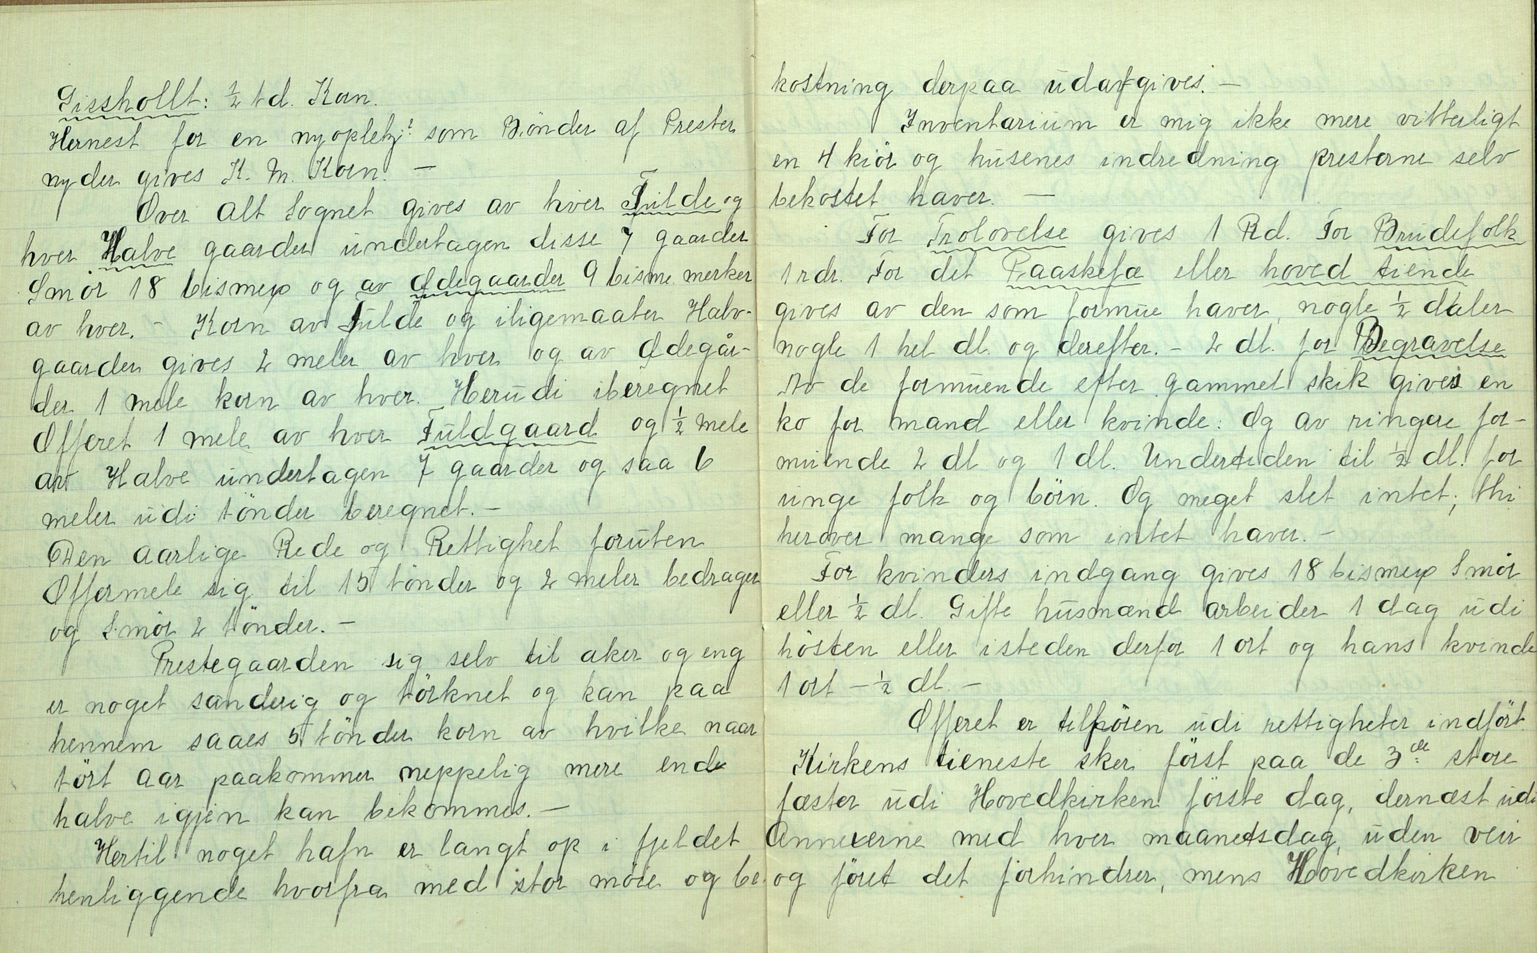 Gisshollt: ½ td. Korn.
Hernest for en nyopletz? som Bönder af Prester
nyder gives K. M. Korn. —
Over alt Sognet gives av hver Fulde og
hver Halve gaarder undertagen disse 7 gaarder
Smör 18 bismerp og av Ödegaarder 9 bisme merker
av hver. – Korn av Fulde og iligemaater Halv-
gaarder gives 2 meler av hver og av Ödegår-
der 1 mele korn av hver. Herudi iberegnet
Offeret 1 mele av hver Fuldgaard og ½ mele
av Halve undertagen 7 gaarder og saa 6
meler udi tönder beregnet. –
Den aarlige Rede og Rettighet foruten
Offermele sig til 15 tönder og 2 meler bedrager
og Smör 2 tönder. –
Prestegaarden sig selv til aker og eng
er noget sanderig og törknet og kan paa
hennem saaes 5 tönder korn av hvilke naar
tört aar paakommer neppelig mere end
halve igjen kan bekommes. —
Hertil noget hafn er langt op i fjeldet
henliggende hvorfra med stor möie og be-
kostning derpaa udafgives. –
Inventarium er mig ikke mere vitterligt
en 4 kiör og husenes indredning presterne selv
bekostet haver. —
For Trolovelse gives 1 Rd. For Brudefolk
1 rdr. For det Paaskefæ eller hoved tiende
gives av den som formue haver, nogle ½ daler
nogle 1 hel dl. og derefter. – 2 dl. for Begravelse
Av de formuende efter gammel skik gives en
ko for mand eller kvinde. Og av ringere for-
muende 2 dl og 1 dl. Undertiden til ½ dl. for
unge folk og börn. Og meget slet intet; thi
herover mange som intet haver. –
For kvinders indgang gives 18 bismerp Smör
eller ½ dl. Gifte husmænd arbeider 1 dag udi
hösten eller isteden derfor 1 ort og hans kvinde
1 ort – ½ dl. –
Offeret er tilforen udi rettigheter indfört.
Kirkens tieneste sker först paa de 3de store
fæster udi Hovedkirken förste dag, dernæst udi
Annexerne med hver maanedsdag, uden veir
og föret det forhindrer, mens Hovedkirken